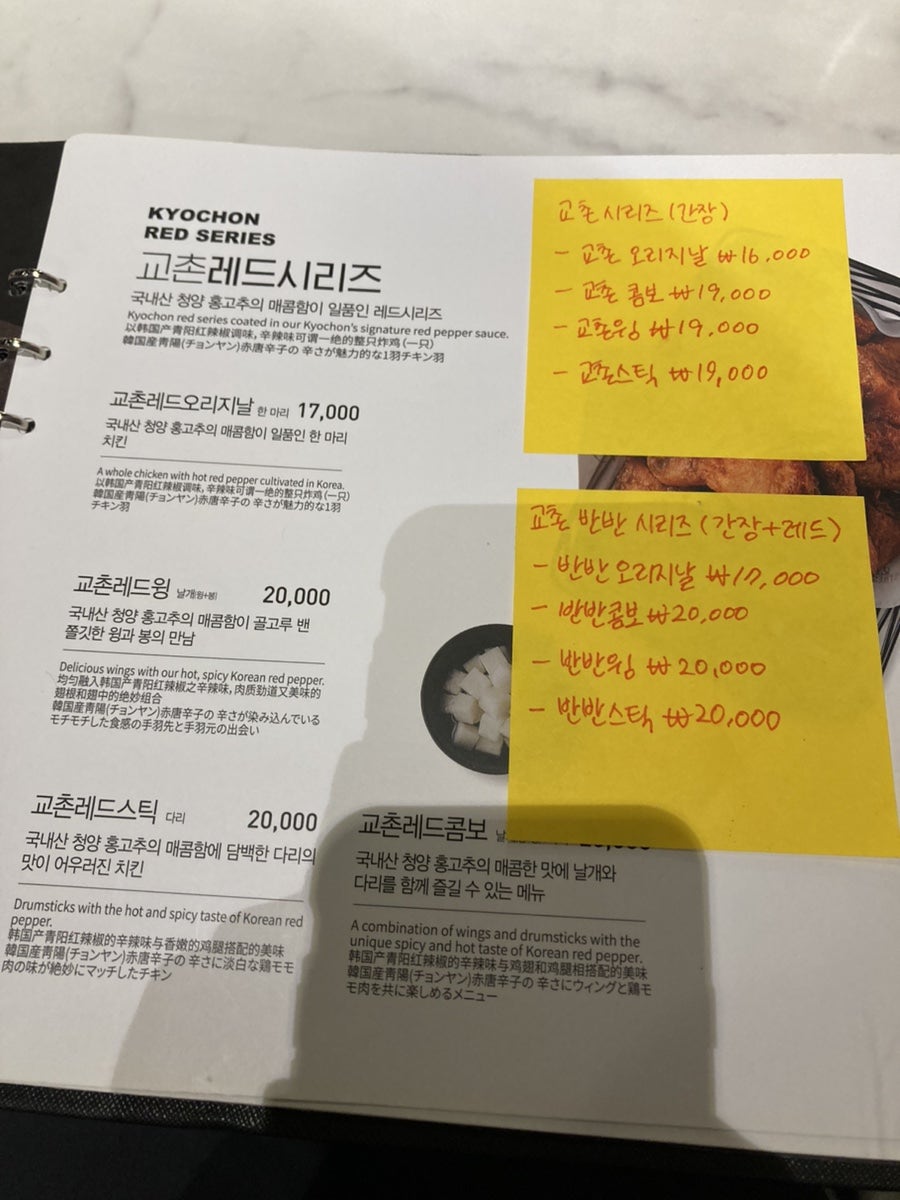 KYOCHON
RED SERIES
교촌레드시리즈
국내산 청양 홍고추의 매콤함이 일품인 레드시리즈
Kyochon red series coated in our Kyochon's signature red pepper sauce.
以韩国产青阳红辣椒调味, 辛辣味可谓一绝的整只炸鸡 (一只)
韓国産青陽(チョンヤン)赤唐辛子の 辛さが魅力的な1羽チキン羽
교촌레드오리지날 한 마리 17,000
국내산 청양 홍고추의 매콤함이 일품인 한 마리
치킨
A whole chicken with hot red pepper cultivated in Korea.
以韩国产青阳红辣椒调味, 辛辣味可谓一绝的整只炸鸡 (一只)
韓国産青陽(チョンヤン)赤唐辛子の 辛さが魅力的な1羽
チキン羽
교촌레드윙 날개(윙+봉) 20,000
국내산 청양 홍고추의 매콤함이 골고루 밴
쫄깃한 윙과 봉의 만남
Delicious wings with our hot, spicy Korean red pepper.
均匀融入韩国产青阳红辣椒之辛辣味, 肉质劲道又美味的
翅根和翅中的绝妙组合
韓国産青陽(チョンヤン)赤唐辛子の 辛さが染み込んでいる
モチモチした食感の手羽先と手羽元の出会い
교촌레드스틱 다리 20,000
국내산 청양 홍고추의 매콤함에 담백한 다리의
맛이 어우러진 치킨
Drumsticks with the hot and spicy taste of Korean red
pepper.
韩国产青阳红辣椒的辛辣味与香嫩的鸡腿搭配的美味
韓国産青陽(チョンヤン)赤唐辛子の 辛さに淡白な鶏モモ
肉の味が絶妙にマッチしたチキン
교촌레드콤보
국내산 청양 홍고추의 매콤한 맛에 날개와
다리를 함께 즐길 수 있는 메뉴
A combination of wings and drumsticks with the
unique spicy and hot taste of Korean red pepper.
韩国产青阳红辣椒的辛辣味与鸡翅和鸡腿相搭配的美味
韓国産青陽(チョンヤン)赤唐辛子の 辛さにウィングと鶏モ
モ肉を共に楽しめるメニュー
교촌 시리즈 (간장)
- 교촌 오리지날 ₩16,000
- 교촌 콤보 ₩19,000
- 교촌윙 ₩19,000
- 교촌스틱 ₩19,000
교촌 반반 시리즈 (간장+레드)
- 반반 오리지날 ₩17,000
- 반반콤보 ₩20,000
- 반반윙 ₩20,000
- 반반스틱 ₩20,000